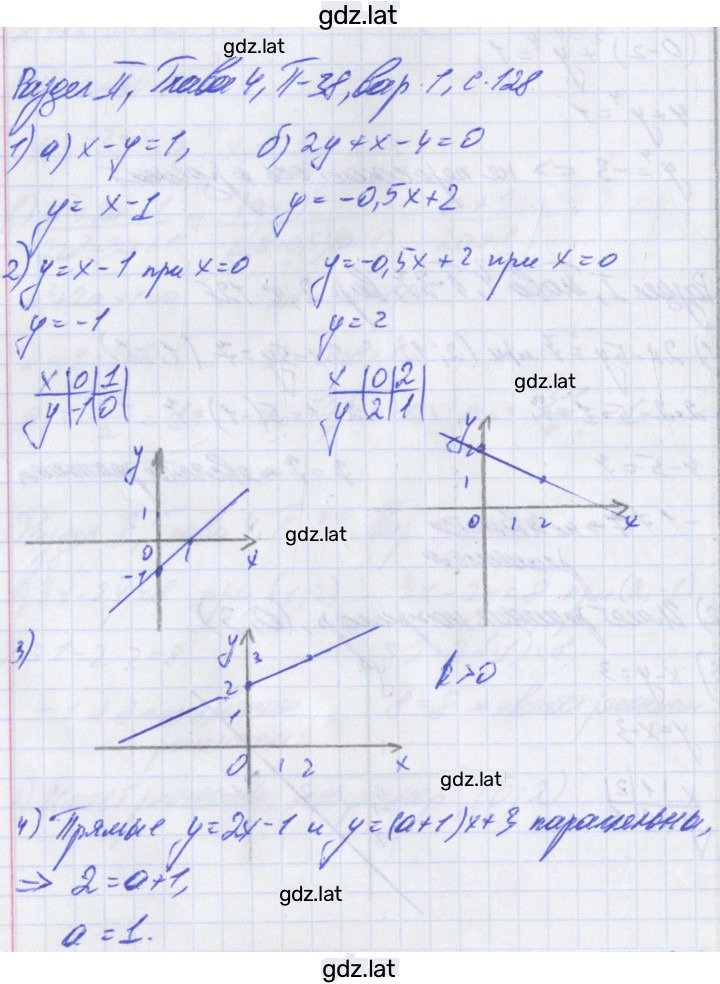 gdz.lat
gdz.lat
Раздел II, Глава 4, П-38, вар. 1, с. 128
1) а) x-y=1, б) 2y+x-4=0
y = x-1 y = -0,5x+2
2) y=x-1 при x=0 y=-0,5x+2 при x=0
y=-1 y=2
x | 0 | 1 | x | 0 | 2 |
y | -1 | 0 | y | 2 | 1 |
gdz.lat
y
2
1
0 1 2 x
y
1
0 1 x
-1
gdz.lat
3)
y
3
2
1
0 1 2 x
k>0
gdz.lat
4) Прямые y=2x-1 и y=(a+1)x+3 параллельны,
=> 2=a+1,
a=1.
gdz.lat
gdz.lat